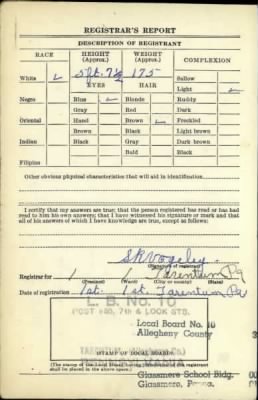 REGISTRAR'S REPORT
DESCRIPTION OF REGISTRANT
RACE HEIGHT (Approx.) WEIGHT (Approx.) COMPLEXION
White 5 ft. 7½ 175 Sallow
EYES HAIR Light
Negro Blue Blonde Ruddy
Gray Red Dark
Oriental Hazel Brown Freckled
Brown Black Light brown
Indian Black Gray Dark brown
Bald Black
Filipino
Other obvious physical characteristics that will aid in identification
I certify that my answers are true; that the person registered has read or has had
read to him his own answers; that I have witnessed his signature or mark and that
all of his answers of which I have knowledge are true, except as follows:
(Signature of registrar)
Registrar for 1 1 Tarentum Pa
(Precinct) (Ward) (City or county)
Date of registration 1st. 1st. Tarentum, Pa
L. B. No. 10
POST 7th & LOCK STS.
Local Board No. 10
Allegheny County
TARENTUM
STAMP OF LOCAL BOARD
(The stamp of the Local Board having jurisdiction of the registrant
shall be placed in the above space.)
Glassmere School Bldg.
Glassmere, Penna.